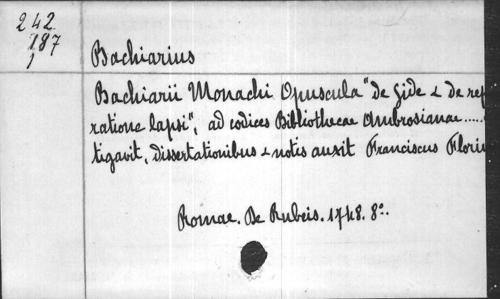 242
187
1
Bachiarius
Bachiarii Monachi Opuscula "de Fide & de rep
ratione lapsi", ad codices Bibliothecae Ambrosianae.....
tigavit, dissertationibus & notis auxit Franciscus Floriu
Romae. De Rubeis. 1748. 8º.